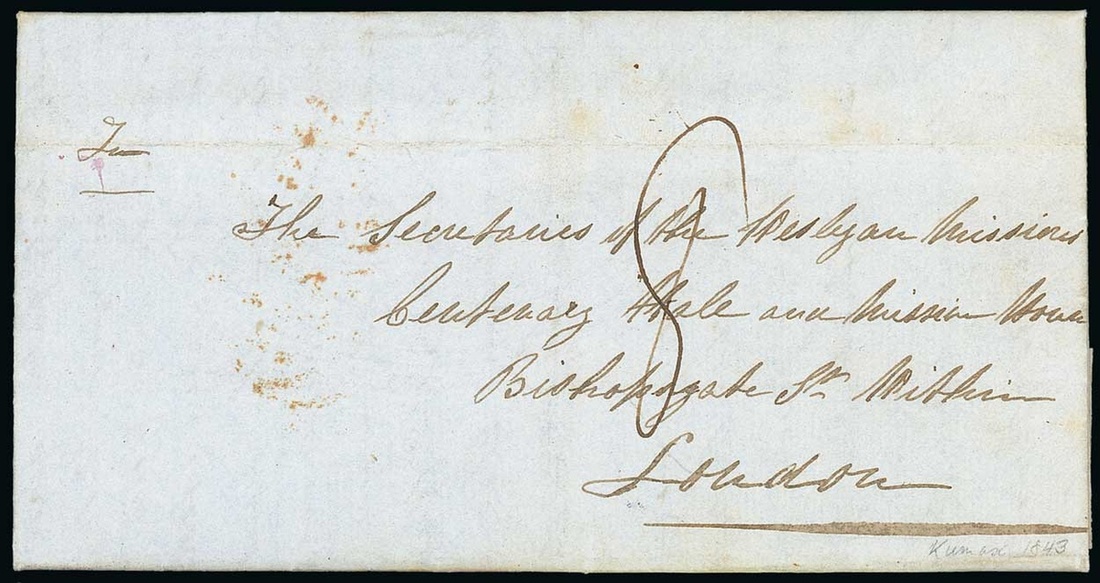 To
The Secretaries of the Wesleyan Missions
Centenary Hall and Mission House
Bishopsgate St. Within
London
8
1843